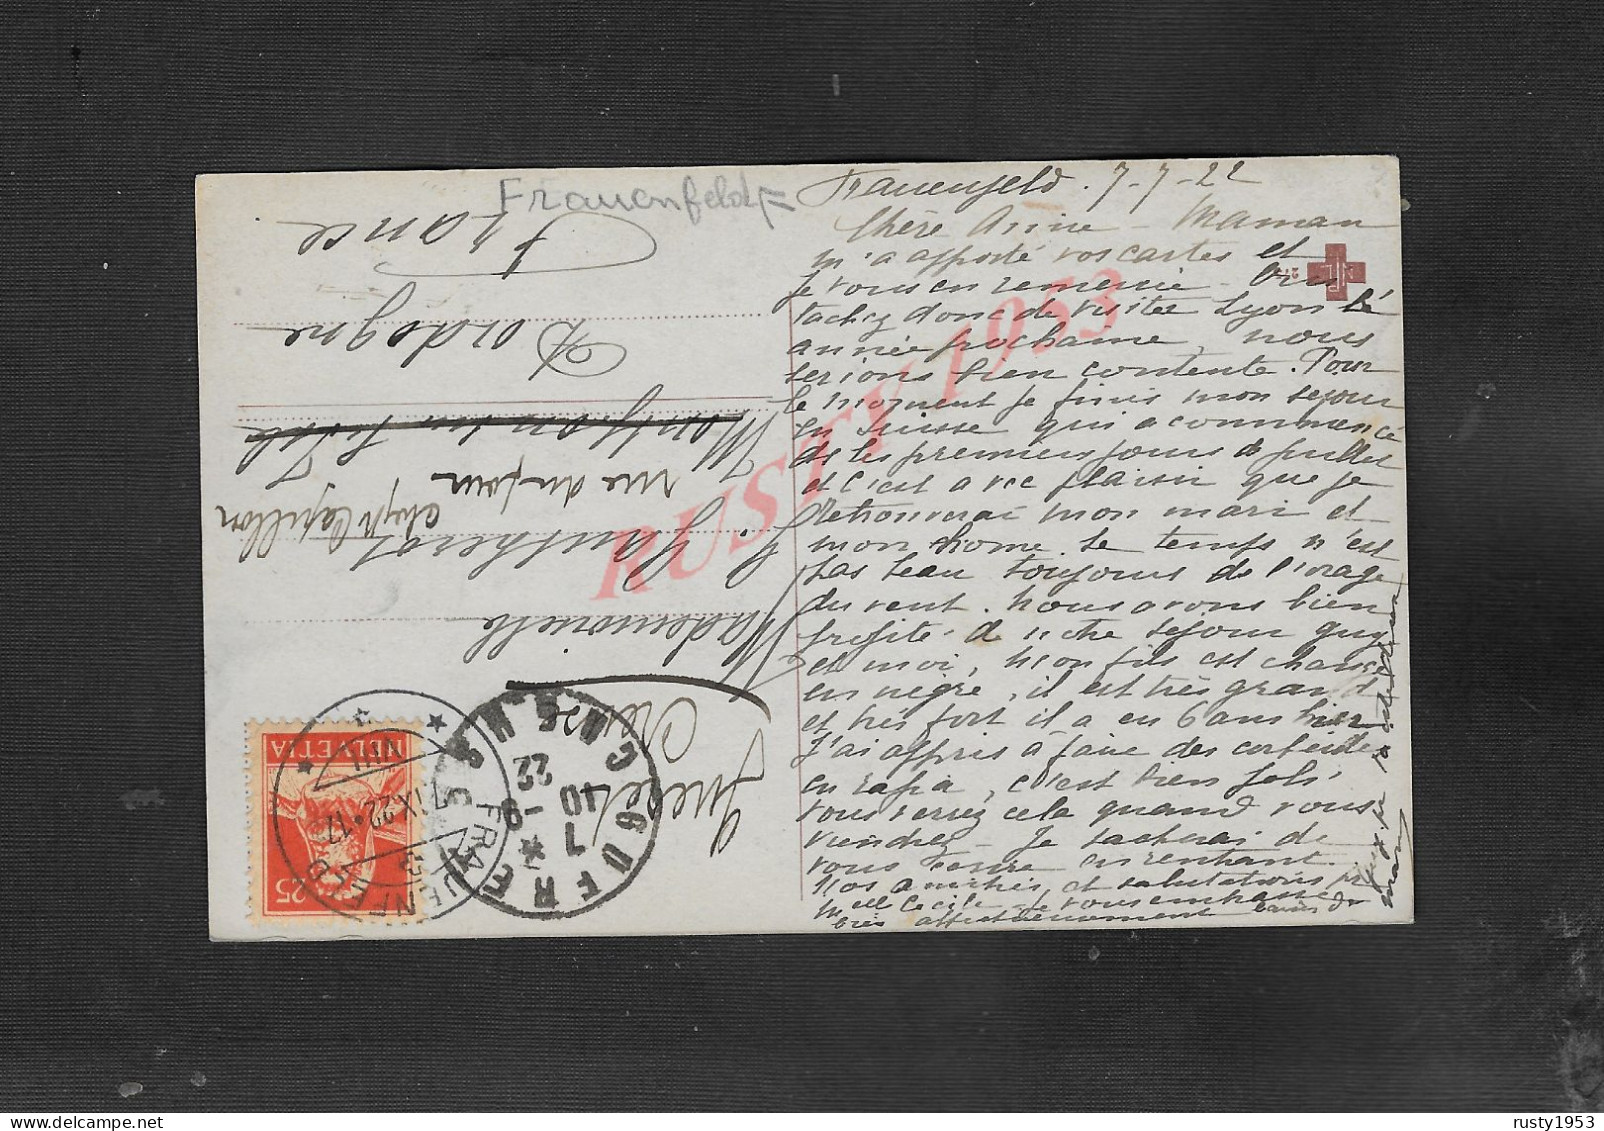 Frauenfeld . 7-7-22
Chère Amie - Maman
m'a apporté vos cartes et
je vous en remercie -
tachez donc de visiter Lyon l'
année prochaine, nous
serions bien contente. Pour
le moment je finis mon sejour
en Suisse qui a commencé
dès les premiers jours de juillet
et c'est avec plaisir que je
retrouverai mon mari et
mon home. Le temps n'est
pas beau toujours de l'orage
du vent. Nous avons bien
profité de notre sejour Guy
et moi, mon fils est changé
en nègre, il est très grand
et très fort il a en 6 ans hier
J'ai appris à faire des corbeilles
en rafia, c'est bien joli
vous verrez cela quand vous
viendrez - Je tacherai de
vous en rentrant.
Nos amitiés, et salutations
Mlle Cécile - Je vous embrasse
très affectueusement
Frauenfeld
Mademoiselle
G. Gautherot
rue du four
Dordogne
France
Creuse
HELVETIA
25
FRAUENFELD
IX.22.17
GUERET
CREUSE
7
10 - 9
22
NPG
RUSTY 1953
rusty1953